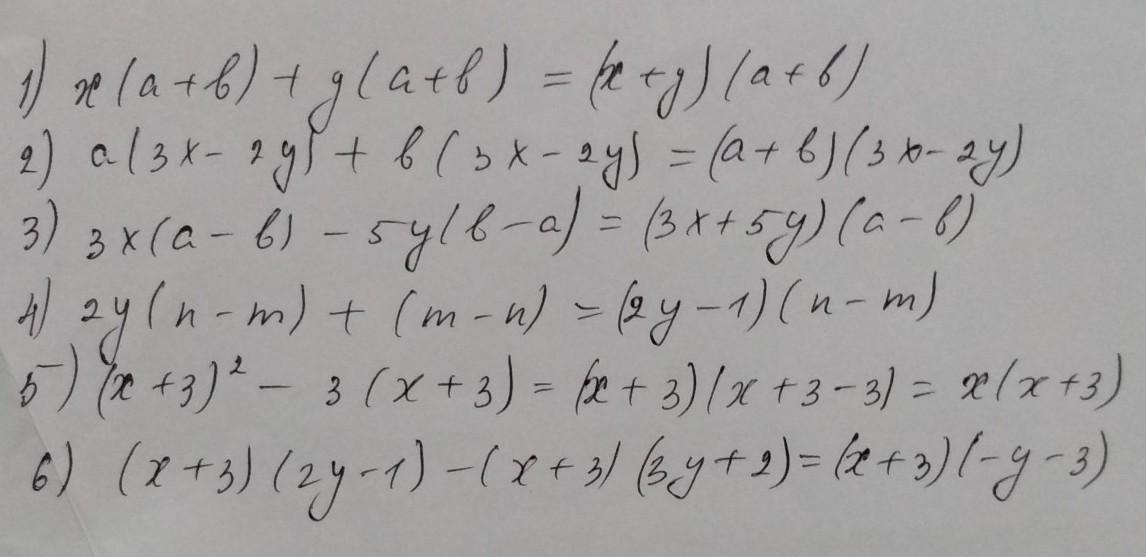 1) x(a+b)+y(a+b) = (x+y)(a+b)
2) a(3x-2y)+b(3x-2y) = (a+b)(3x-2y)
3) 3x(a-b)-5y(b-a) = (3x+5y)(a-b)
4) 2y(n-m)+(m-n) = (2y-1)(n-m)
5) (x+3)²-3(x+3) = (x+3)(x+3-3) = x(x+3)
6) (x+3)(2y-1)-(x+3)(3y+2) = (x+3)(-y-3)